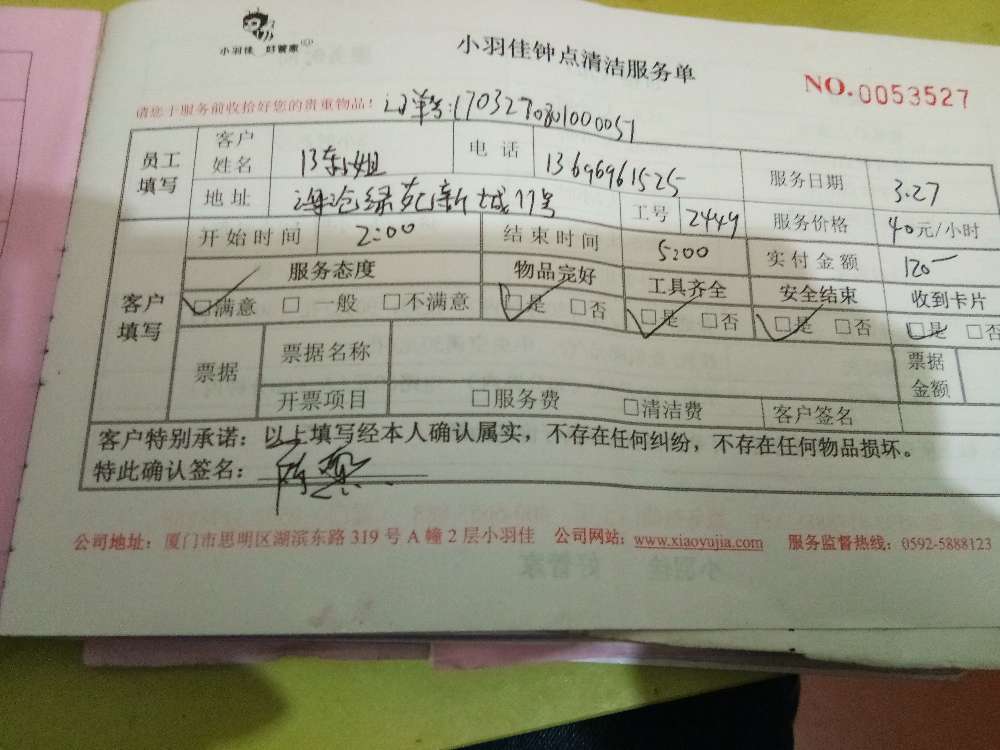 小羽佳 好管家
小羽佳钟点清洁服务单
NO.0053527
请您于服务前收拾好您的贵重物品!
订单号:1703270801000057
员工填写 客户姓名 电话 13696961525 服务日期 3.27
地址 海沧绿苑新城77号 工号 2449 服务价格 40元/小时
开始时间 2:00 结束时间 5:00 实付金额 120-
客户填写 服务态度 物品完好 工具齐全 安全结束 收到卡片
☑满意 □一般 □不满意 ☑是 □否 ☑是 □否 ☑是 □否 ☑是 □否
票据 票据名称 票据金额
开票项目 □服务费 □清洁费 客户签名
客户特别承诺:以上填写经本人确认属实,不存在任何纠纷,不存在任何物品损坏。
特此确认签名:
公司地址:厦门市思明区湖滨东路 319 号 A 幢 2 层小羽佳 公司网站:www.xiaoyujia.com 服务监督热线:0592-5888123